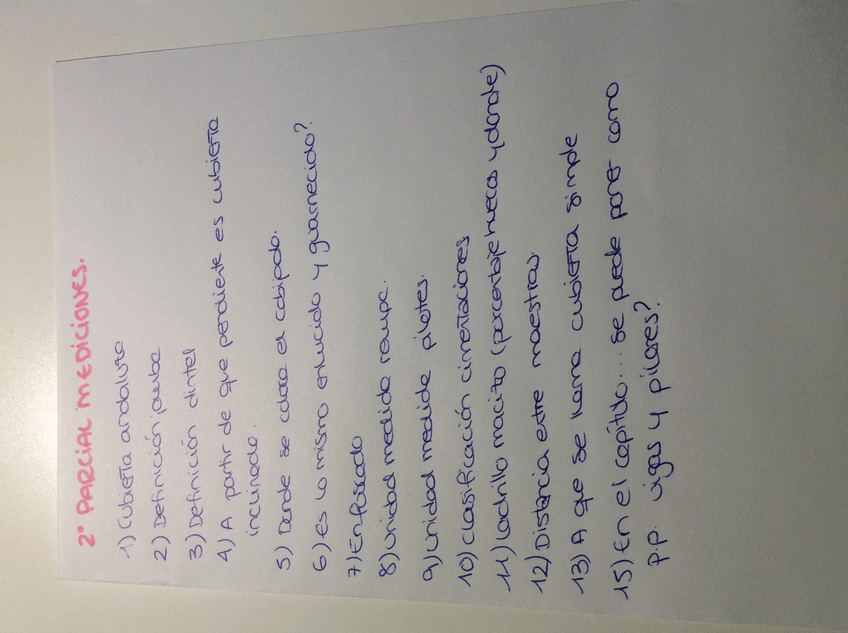 2º PARCIAL MEDICIONES.
1) Cubierta andaluza
2) Definición jamba
3) Definición dintel
4) A partir de que pendiente es cubierta
inclinada.
5) Donde se coloca el cobijado.
6) Es lo mismo enlucido y guarnecido?
7) Enfoscado
8) Unidad medida rampa.
9) Unidad medida pilotes.
10) Clasificación cimentaciones
11) Ladrillo macizo (porcentaje huecos y donde)
12) Distancia entre maestras.
13) A que se llama cubierta simple
15) En el capítulo... se puede poner como
p.p. vigas y pilares?